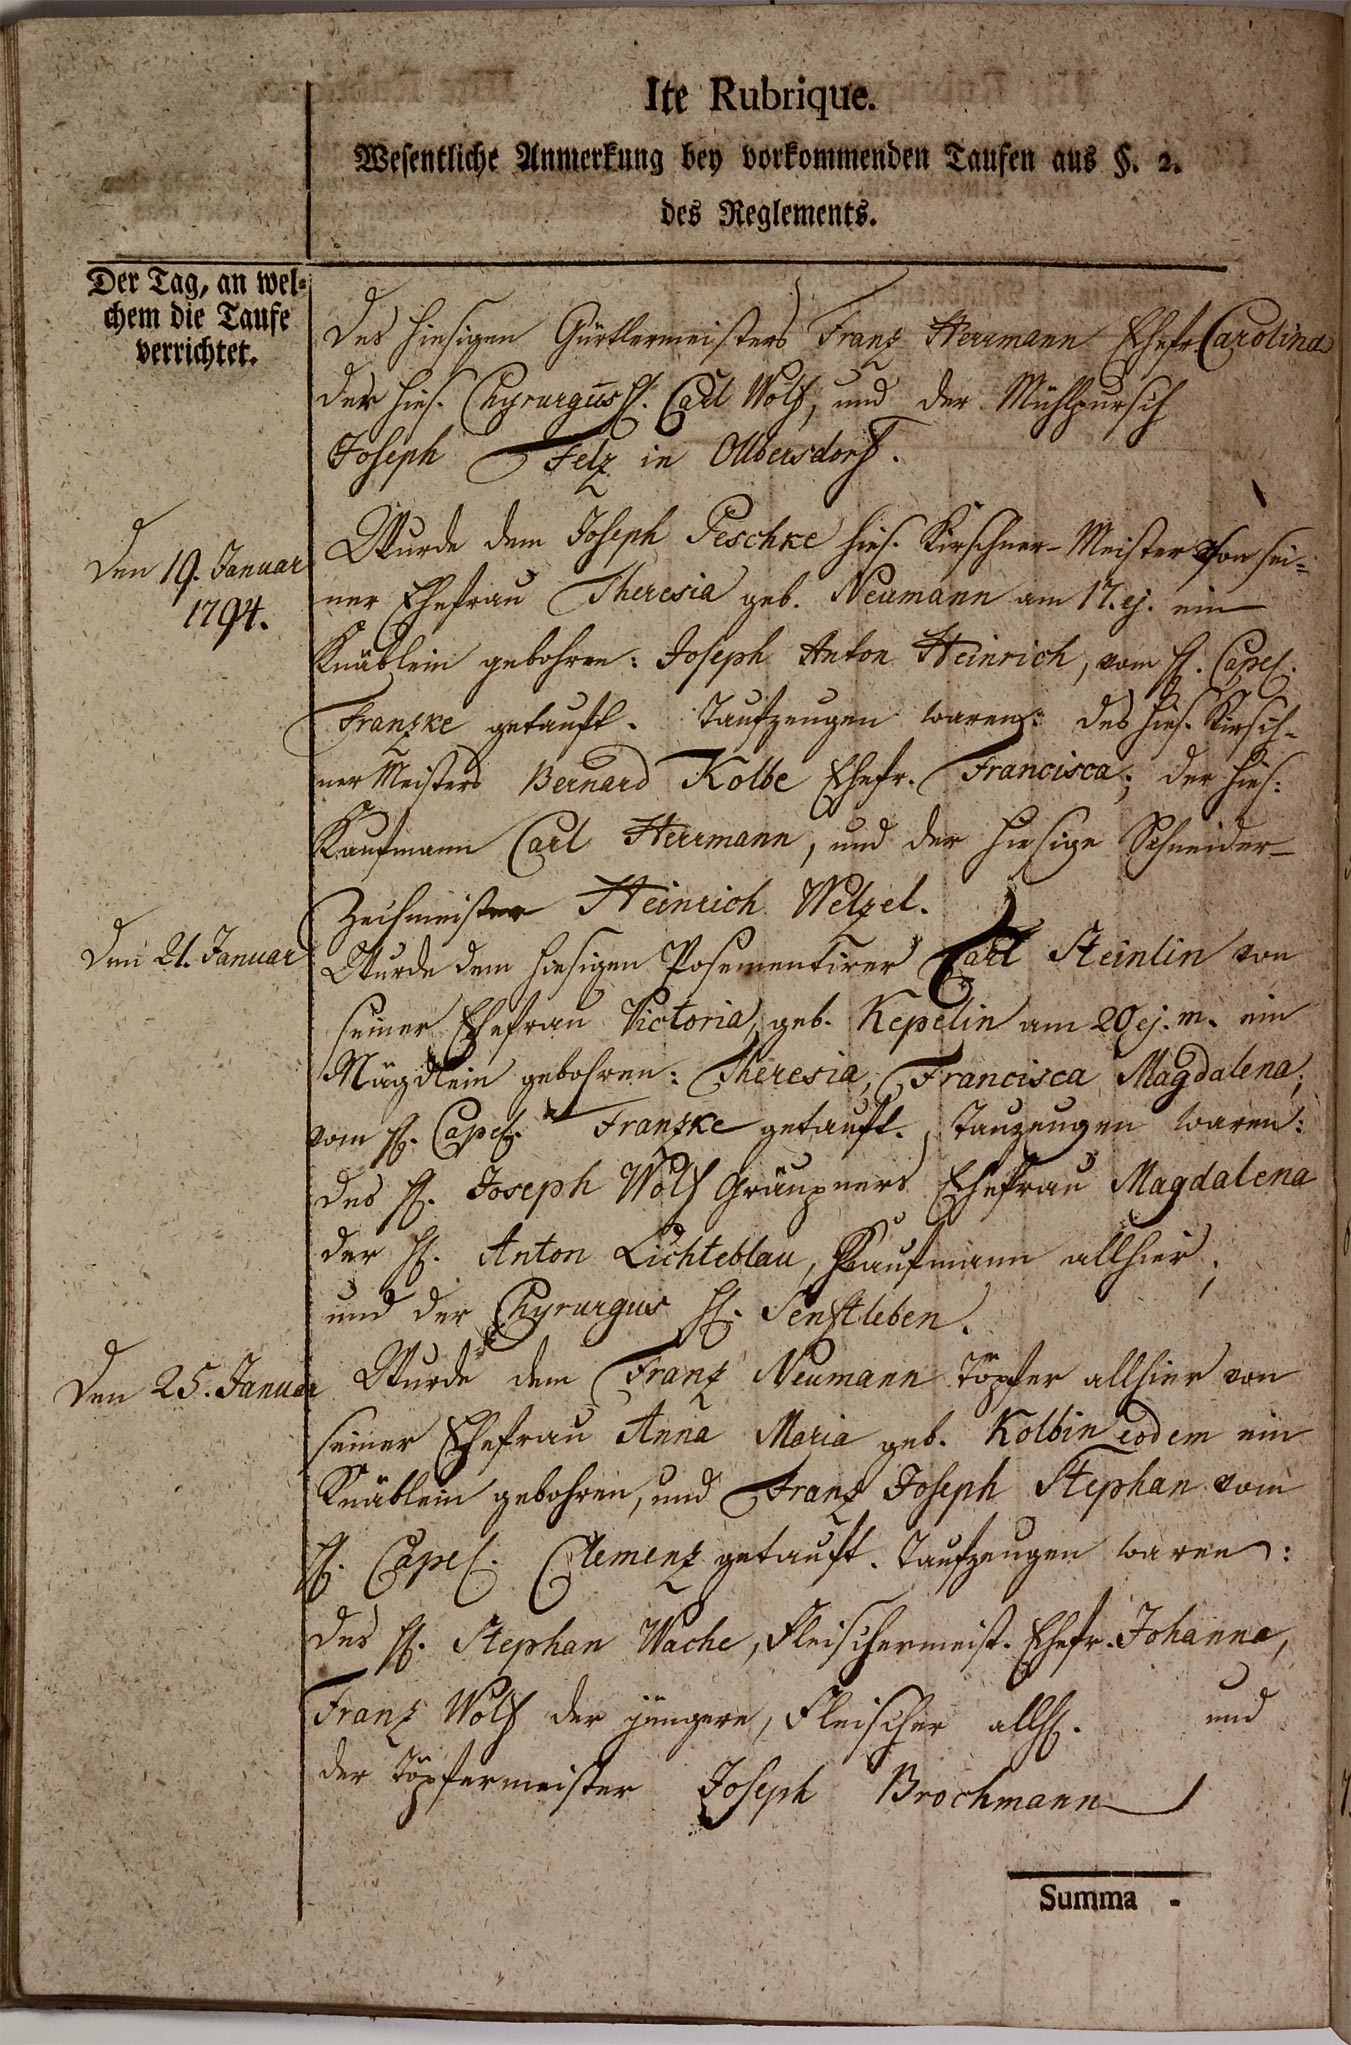 Ite Rubrique.
Wesentliche Anmerkung bey vorkommenden Taufen aus §. 2.
des Reglements.
Der Tag, an wel-
chem die Taufe
verrichtet.
des hiesigen Gürtlermeisters Franz Herrmann Ehefr. Carolina
der hies. Chyrurgus H. Carl Wolf, und der Mühlpursch
Joseph Felz in Olbersdorf.
Den 19. Januar
1794.
Wurde dem Joseph Peschke hies. Kirschner-Meister von sei-
ner Ehefrau Theresia geb. Neumann am 17. ej. ein
Knäblein gebohren: Joseph Anton Heinrich, vom H. Capel.
Franzke getauft. Taufzeugen waren: des hies. Kirsch-
ner Meisters Bernard Kolbe Ehefr. Francisca; der hies:
Kaufmann Carl Herrmann, und der hiesige Schneider-
Zechmeister Heinrich Welzel.
Den 21. Januar
Wurde dem hiesigen Posementirer Carl Steinlin von
seiner Ehefrau Victoria, geb. Kepelin am 20 ej. m. ein
Mägdlein gebohren: Theresia, Francisca Magdalena,
vom H. Capel. Franzke getauft. Tauzeugen waren:
des H. Joseph Wolf Gräupners Ehefrau Magdalena
der H. Anton Lichteblau, Kaufmann allhier,
und der Chyrurgus H. Senftleben.
Den 25. Januar
Wurde dem Franz Neumann Töpfer allhier von
seiner Ehefrau Anna Maria geb. Kolbin eodem ein
Knäblein gebohren, und Franz Joseph Stephan vom
H. Capel. Clemenz getauft. Taufzeugen waren:
des H. Stephan Wache, Fleischermeist. Ehefr. Johanna,
Franz Wolf der jüngere, Fleischer allh. und
der Töpfermeister Joseph Brochmann
Summa -